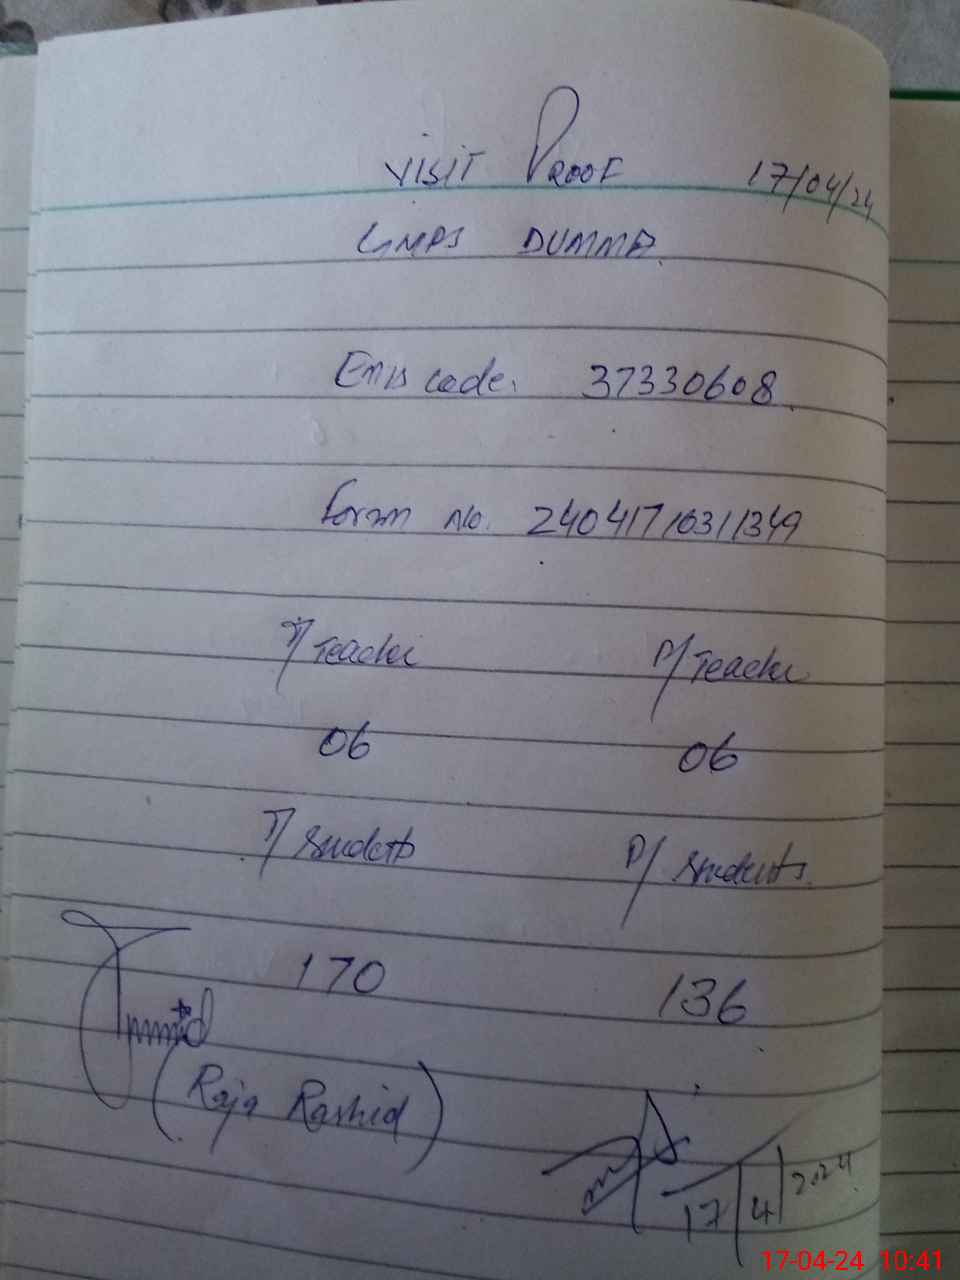 VISIT PROOF 17/04/24
GMPS DUMMA.
Emis code. 37330608.
Foram No. 24041710311349
T/ Teacher P/ Teacher
06 06
T/ Students P/ Students.
170 136
(Raja Rashid)
17/4/2024
17-04-24 10:41